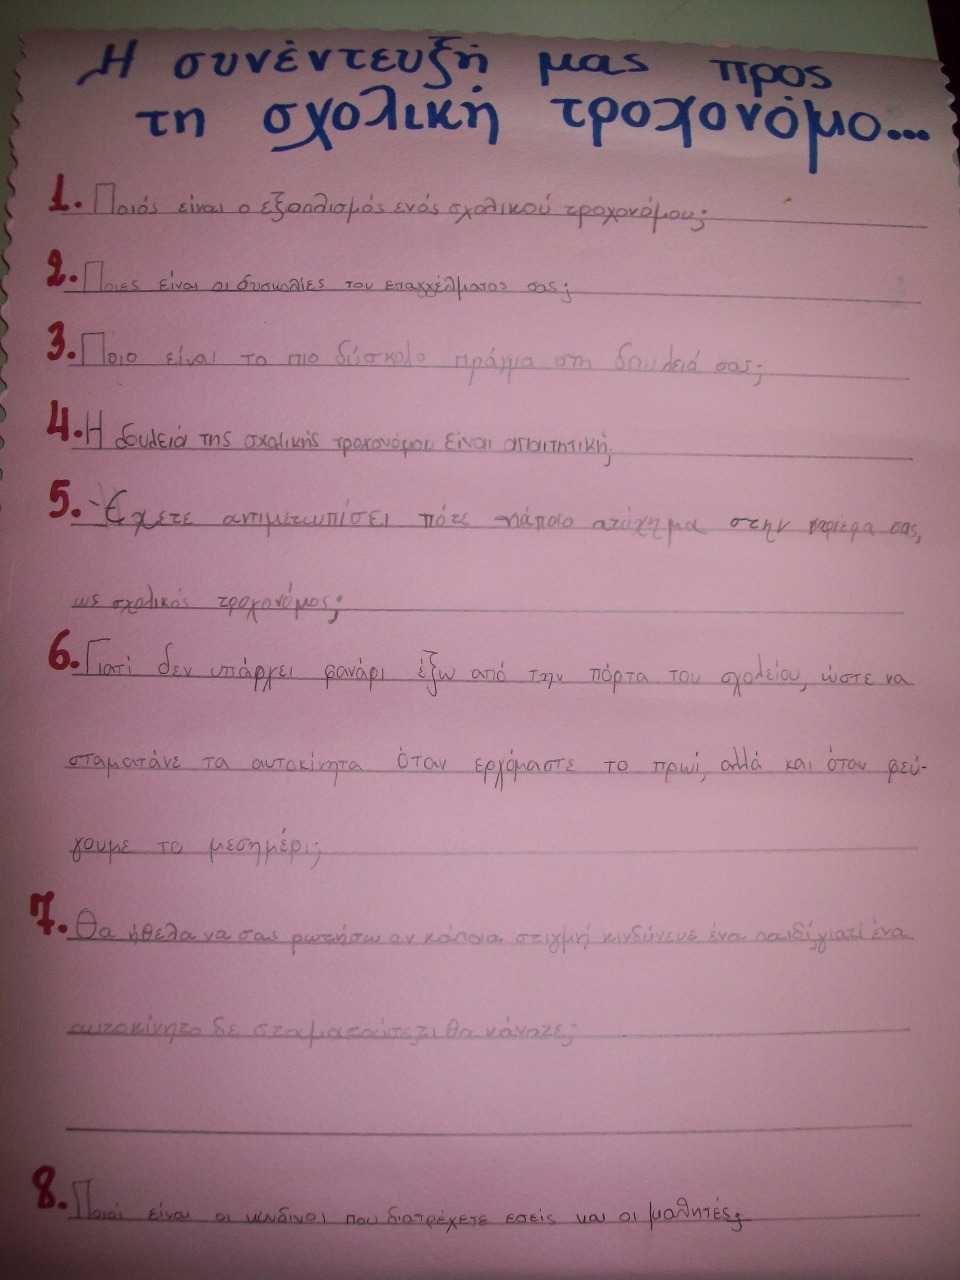 Η συνέντευξή μας προς
τη σχολική τροχονόμο...
1. Ποιός είναι ο εξοπλισμός ενός σχολικού τροχονόμου;
2. Ποιες είναι οι δυσκολίες του επαγγέλματος σας;
3. Ποιο είναι το πιο δύσκολο πράγμα στη δουλειά σας;
4. Η δουλειά της σχολικής τροχονόμου είναι απαιτητική;
5. Έχετε αντιμετωπίσει πότε κάποιο ατύχημα στην καριέρα σας,
ως σχολικός τροχονόμος;
6. Γιατί δεν υπάρχει φανάρι έξω από την πόρτα του σχολείου, ώστε να
σταματάνε τα αυτοκίνητα όταν ερχόμαστε το πρωί, αλλά και όταν φεύ-
γουμε το μεσημέρι;
7. Θα ήθελα να σας ρωτήσω αν κάποια στιγμή κινδύνευε ένα παιδί, γιατί ένα
αυτοκίνητο δε σταματούσε, τι θα κάνατε;
8. Ποιοί είναι οι κίνδινοι που διατρέχετε εσείς και οι μαθητές;